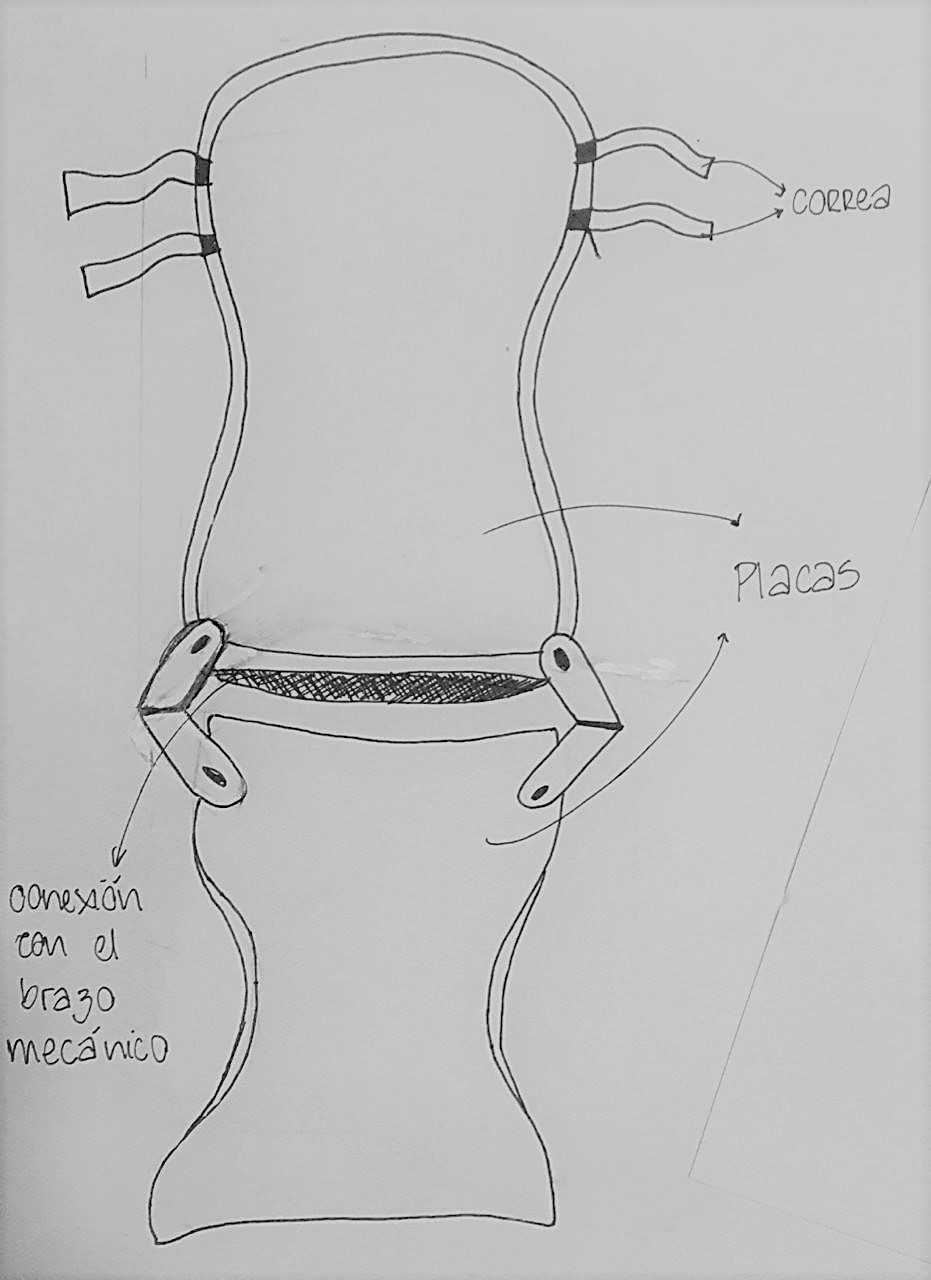 correa
Placas
conexión
con el
brazo
mecánico